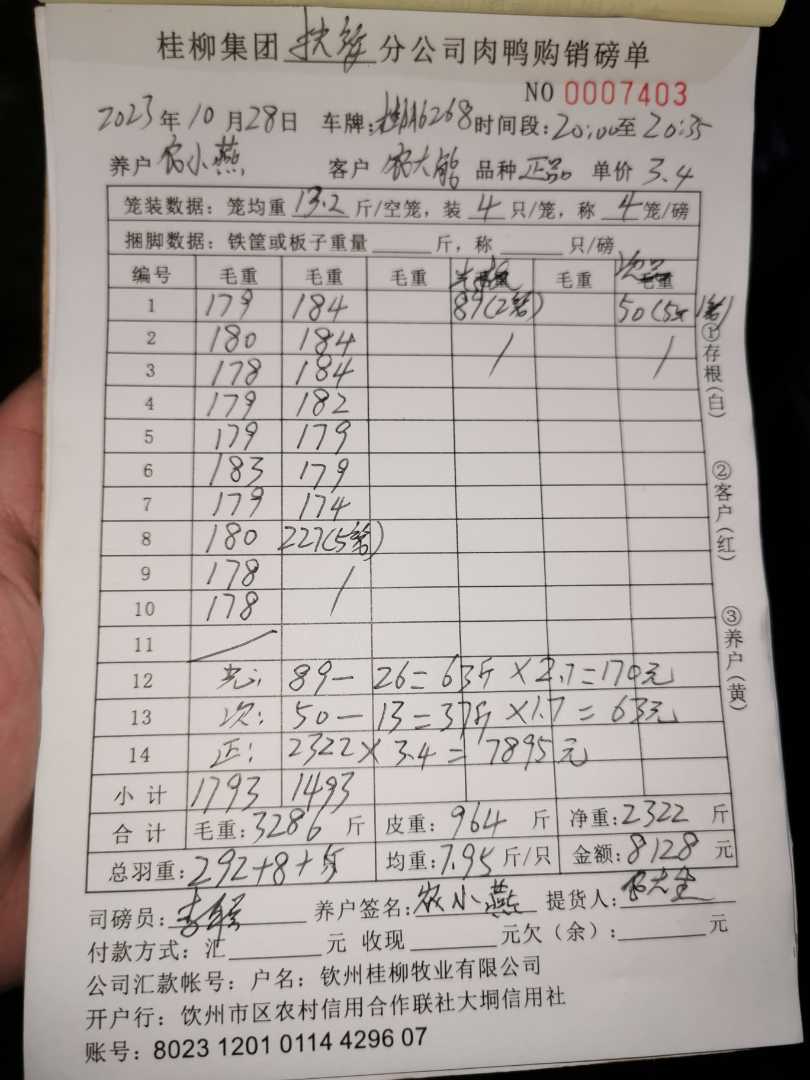 桂柳集团扶绥分公司肉鸭购销磅单
NO 0007403
2023年10月28日 车牌:桂A16268 时间段:20:00至20:35
养户 农小燕 客户 农大能 品种 正品 单价 3.4
笼装数据: 笼均重 13.2 斤/空笼, 装 4 只/笼, 称 4 笼/磅
捆脚数据: 铁筐或板子重量____斤, 称____只/磅
编号 毛重 毛重 毛重 毛重 毛重 次品 毛重
1 179 184 89(2笼) 50(5只1笼)
2 180 184 /
3 178 184 /
4 179 182
5 179 179
6 183 179
7 179 174
8 180 227(5笼)
9 178 /
10 178
11 /
12 光: 89-26=63斤×2.7=170元
13 次: 50-13=37斤×1.7=63元
14 正: 2322×3.4=7895元
小计 1793 1493
合计 毛重:3286斤 皮重:964斤 净重:2322斤
总羽重:292+8+5 均重:7.95斤/只 金额:8128元
司磅员: 养户签名:农小燕 提货人:
付款方式: 汇____元 收现____元欠(余):____元
公司汇款帐号: 户名: 钦州桂柳牧业有限公司
开户行: 钦州市区农村信用合作联社大垌信用社
账号: 8023 1201 0114 4296 07
①存根(白)
②客户(红)
③养户(黄)